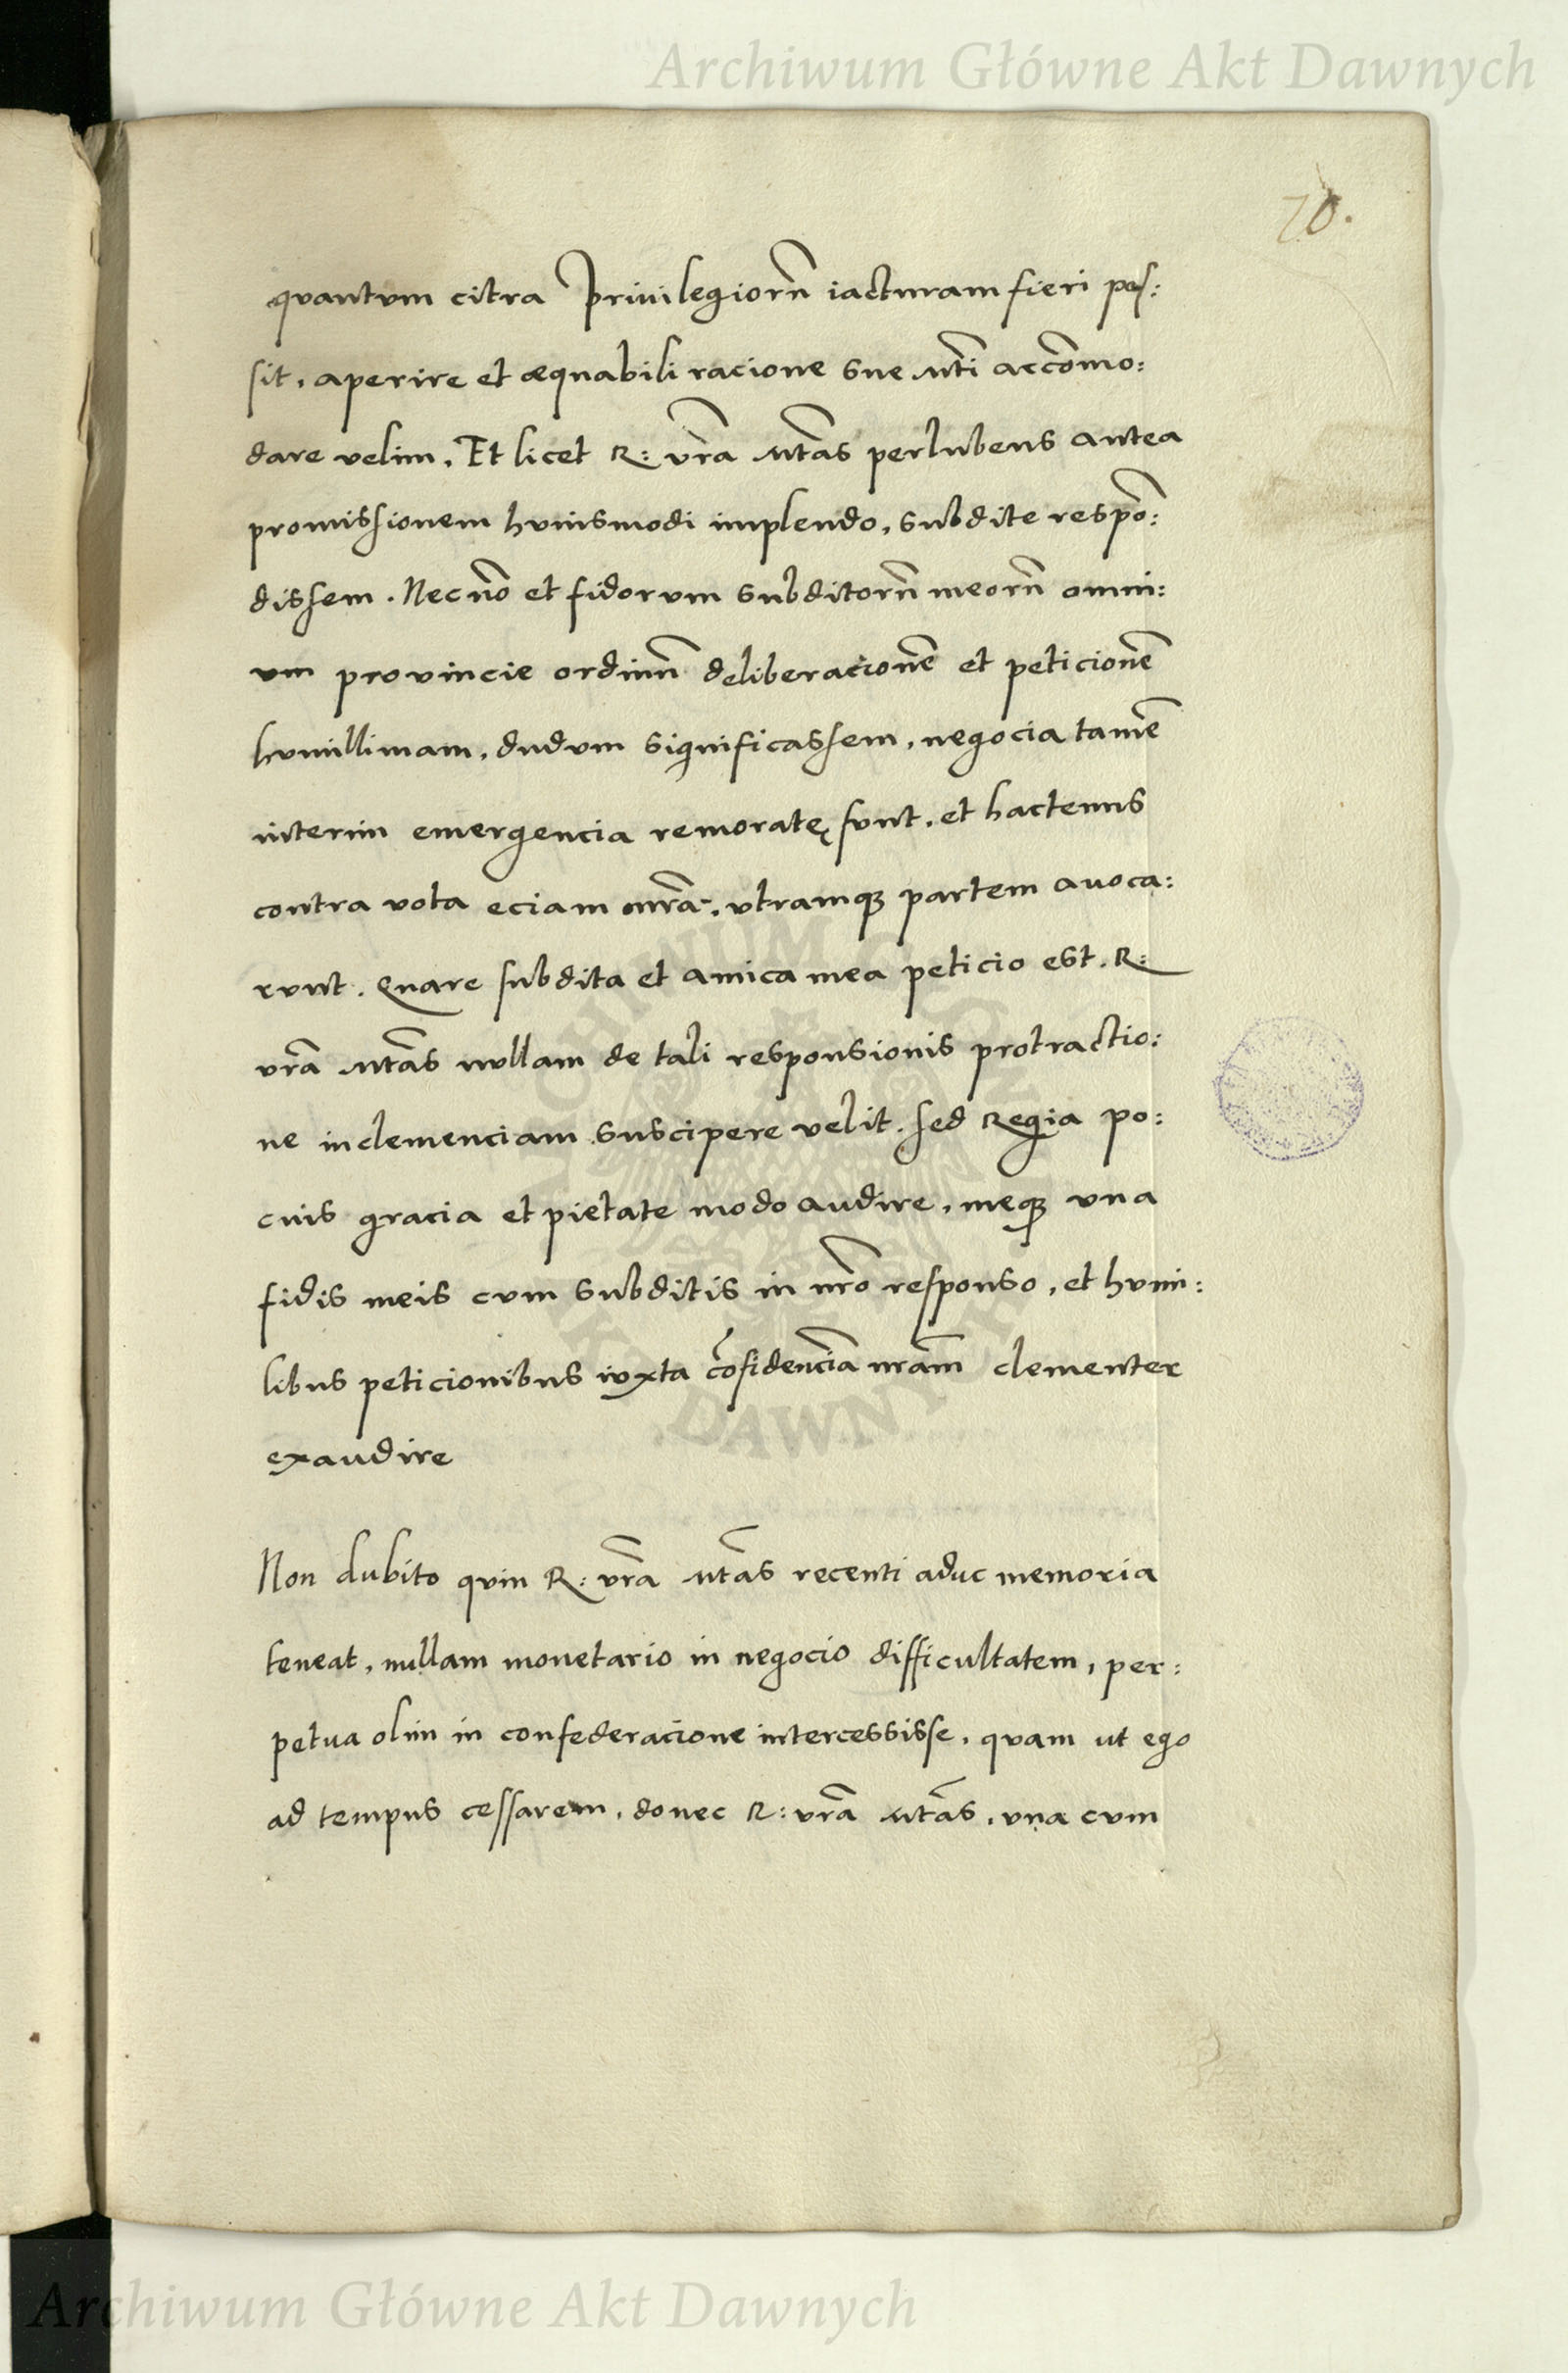 Archiwum Główne Akt Dawnych
70.
quantum citra Privilegiorn̄ iacturam fieri pos:
sit, aperire et æquabili racione sue Mti accōmo:
dare velim. Et licet R: vr̄a Mtas perlubens antea
promissionem huiusmodi implendo, subdite respō:
dissem. Nec nō et fidorum subditorn̄ meorn̄ omni:
um provincie ordinn̄ deliberacionē et peticionē
humillimam, dudum significassem, negocia tamē
interim emergencia remoratę sunt, et hactenus
contra vota eciam nr̄a, utramqꝫ partem avoca:
runt. Quare subdita et amica mea peticio est. R:
vr̄a Mtas nullam de tali responsionis protractio:
ne inclemenciam suscipere velit. sed Regia po:
cuis gracia et pietate modo audire, meqꝫ una
fidis meis cum subditis in nr̄o responso, et humi:
libus peticionibus iuxta cōfidenciā nr̄am clementer
exaudire
Non dubito quin R: vr̄a Mtas recenti aduc memoria
teneat, nullam monetario in negocio difficultatem, per:
petua olim in confederacione intercessisse, quam ut ego
ad tempus cessarem, donec R: vr̄a Mtas, una cum
ARCHIWUM
AKT DAWNYCH
Archiwum Główne Akt Dawnych